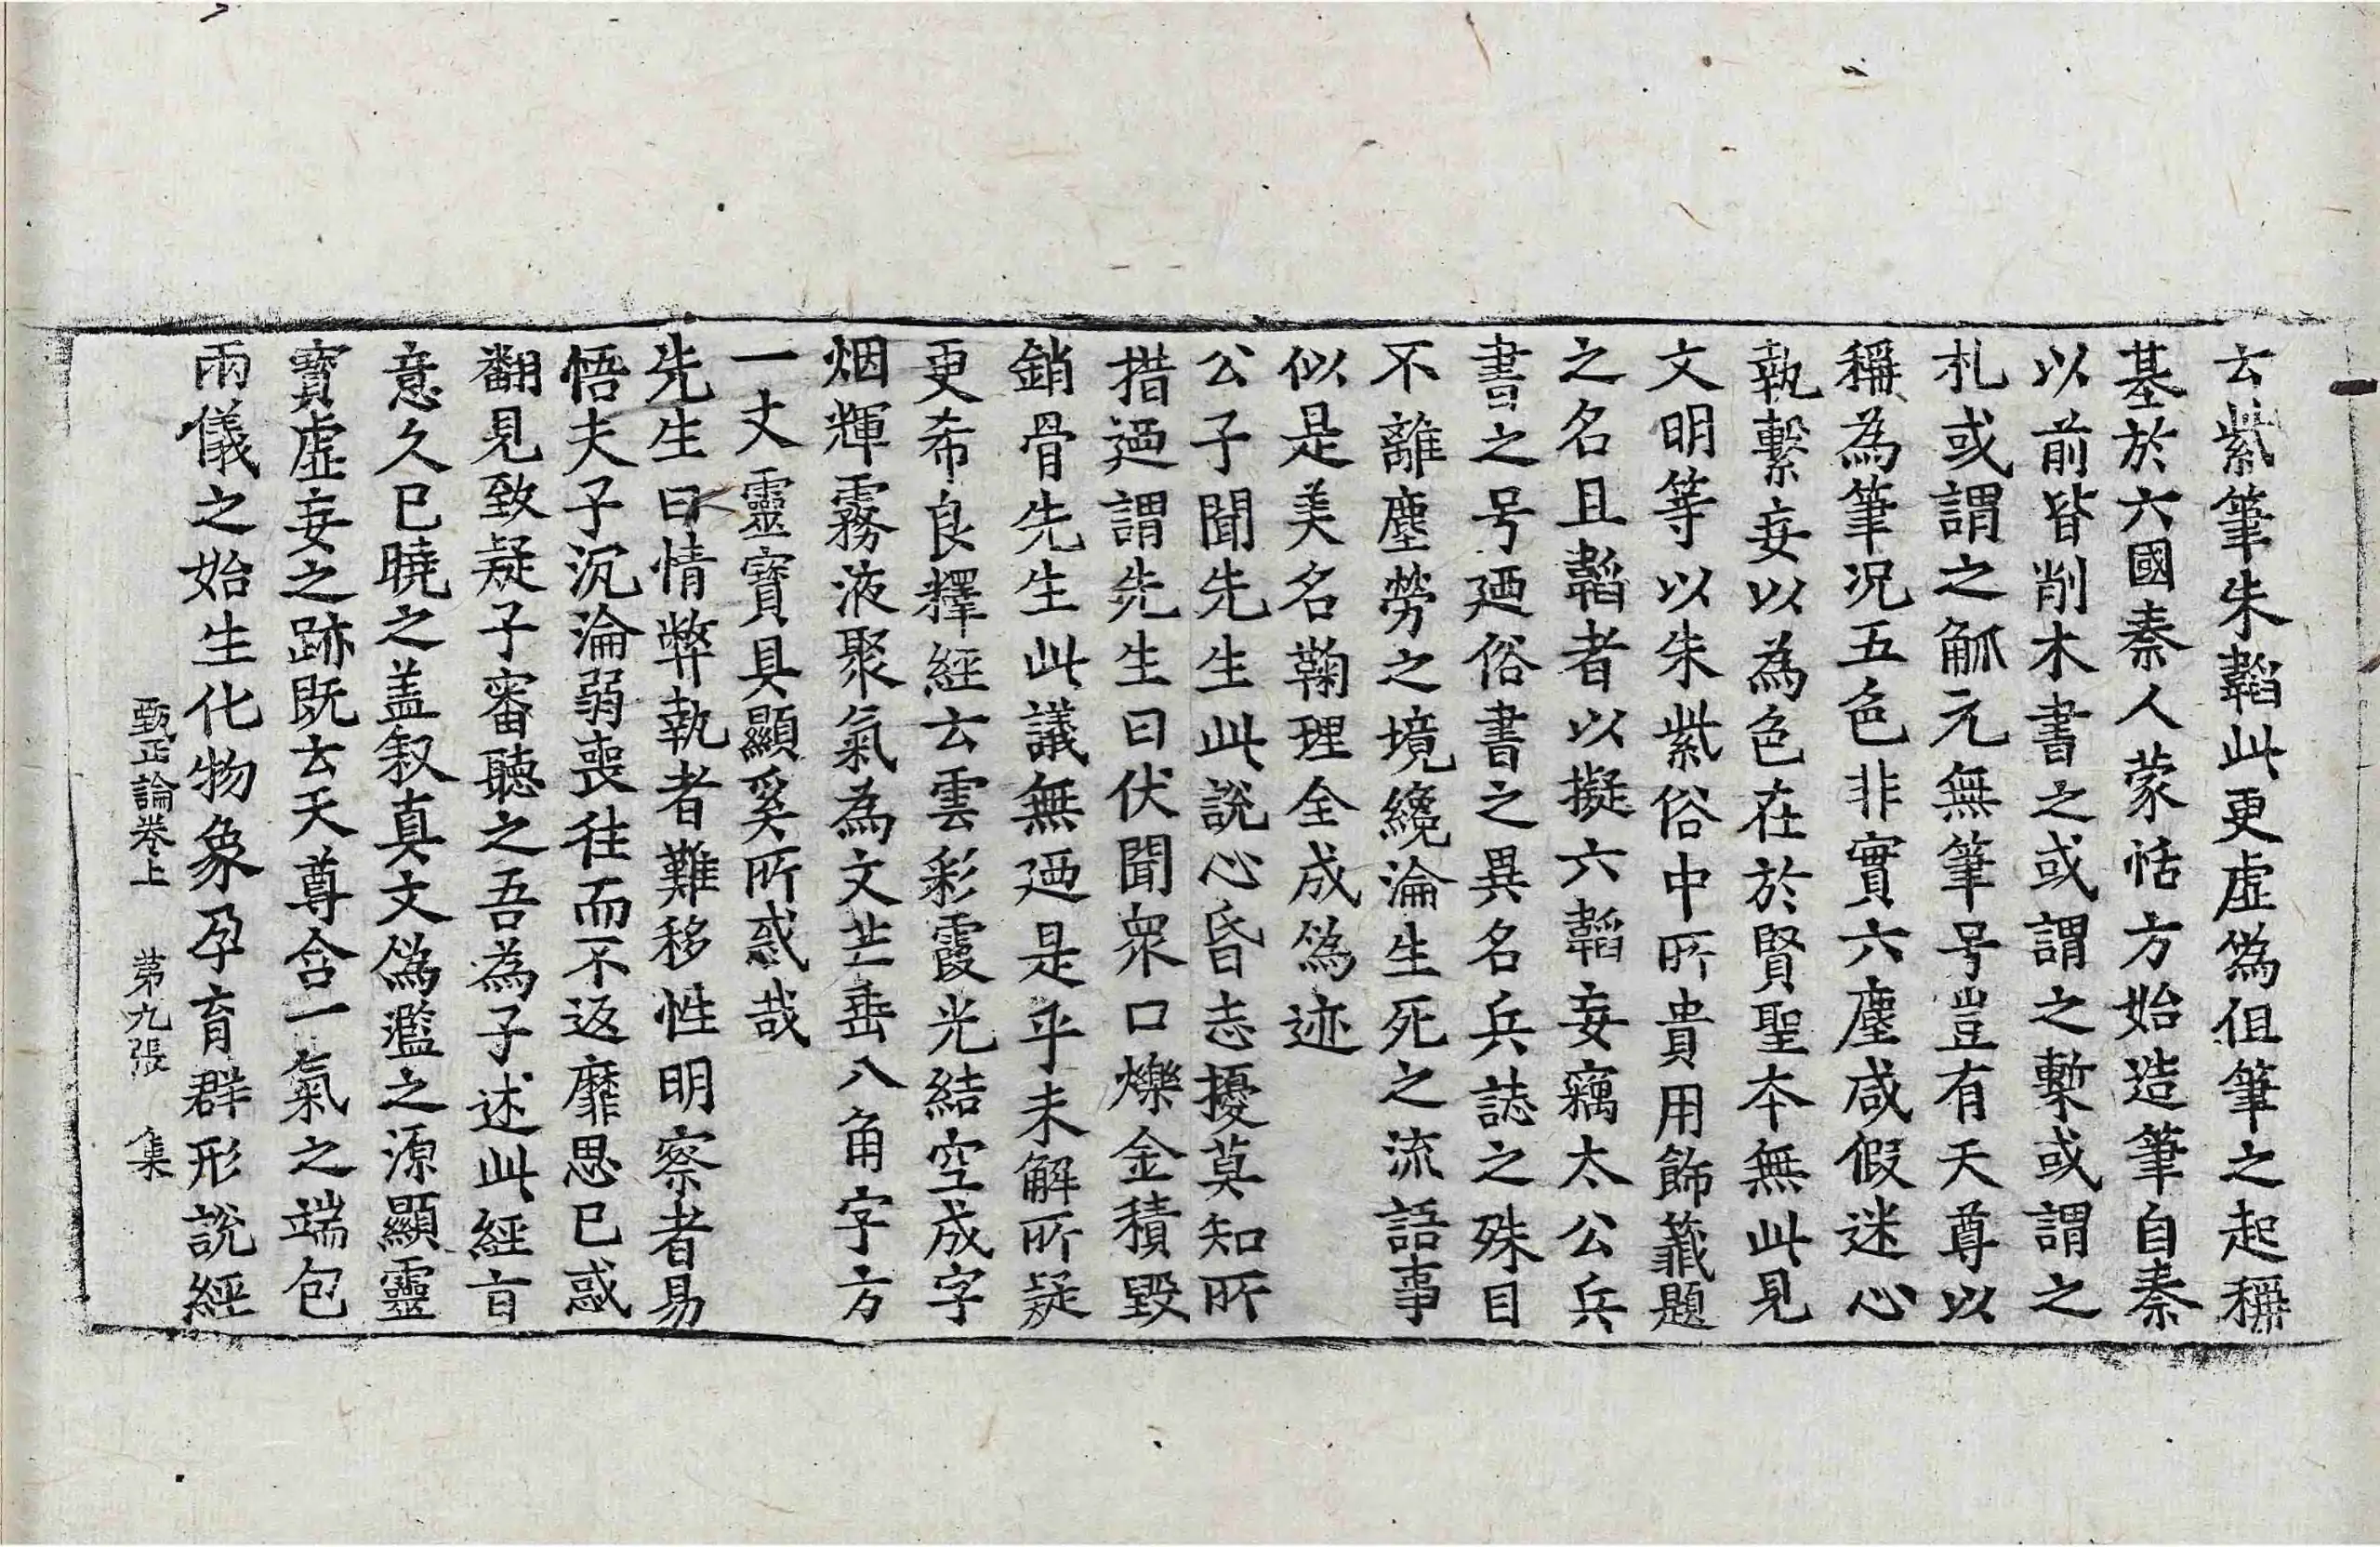 云紫筆朱韜此更虛偽但筆之起稱
基於六國秦人蒙恬方始造筆自秦
以前皆削木書之或謂之槧或謂之
札或謂之觚元無筆号豈有天尊以
稱為筆况五色非實六塵咸假迷心
執繫妄以為色在於賢聖本無此見
文明等以朱紫俗中所貴用飾籤題
之名且韜者以擬六韜妄竊太公兵
書之号廼俗書之異名兵誌之殊目
不離塵勞之境纔淪生死之流語事
似是美名鞠理全成偽迹
公子聞先生此說心昏志擾莫知所
措廼謂先生曰伏聞衆口爍金積毀
銷骨先生此議無廼是乎未解所疑
更希良釋經云雲彩霞光結空成字
烟輝霧液聚氣為文芒垂八角字方
一丈靈寶具顯奚所惑哉
先生曰情弊執者難移性明察者易
悟夫子沉淪弱喪往而不返靡思已惑
翻見致疑子審聽之吾為子述此經㫖
意久已曉之盖叙真文偽濫之源顯靈
寶虛妄之跡既云天尊含一氣之端包
兩儀之始生化物象孕育群形說經
甄正論卷上 第九張 集